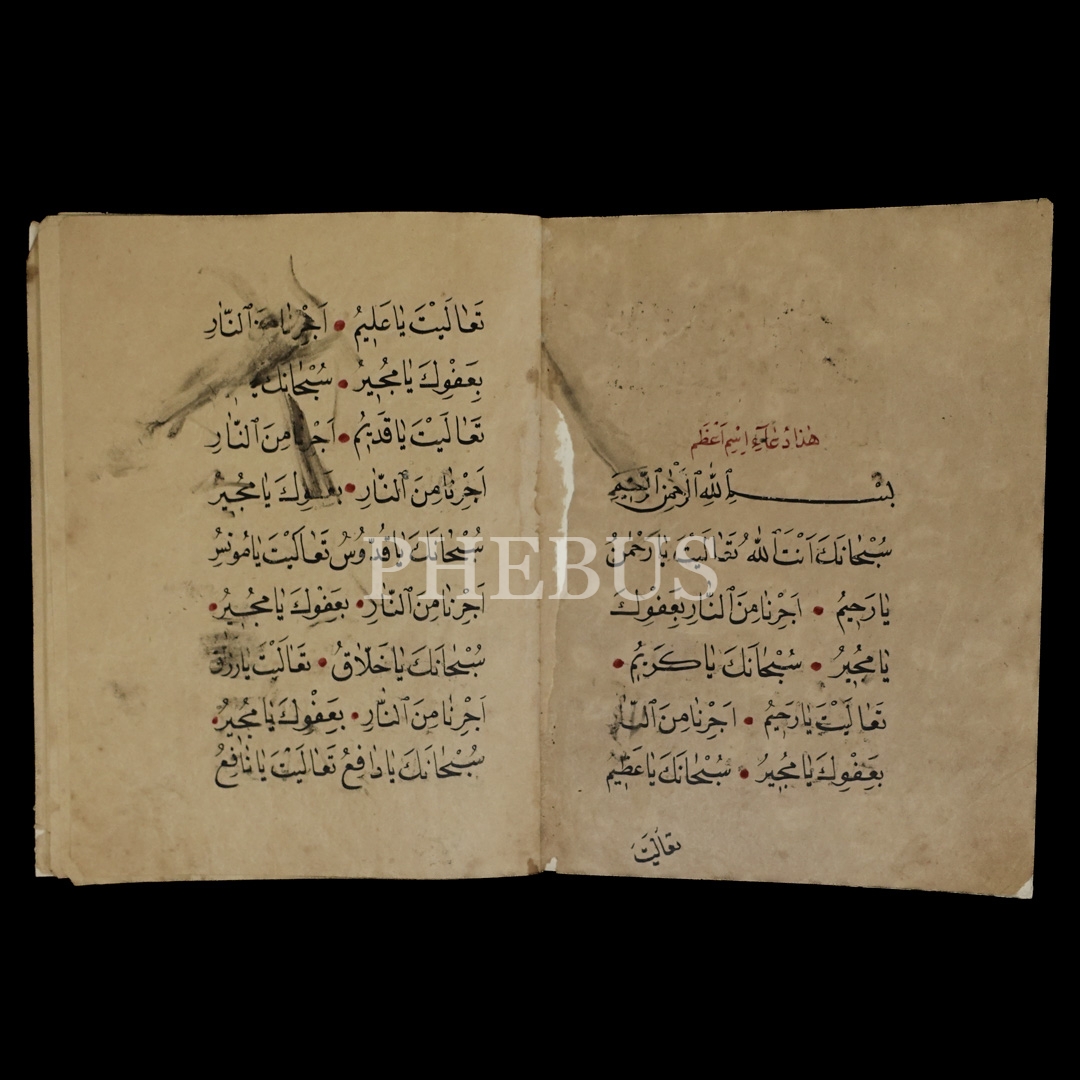 هٰذَا دُعَاۤءِ اِسْمِ اَعْظَم
بِسْمِ اللهِ الرَّحْمٰنِ الرَّحِيمِ
سُبْحَانَكَ اَنْتَ اللهُ تَعَالَيْتَ يَا رَحْمٰنُ
يَا رَحِيمُ • اَجِرْنَا مِنَ النَّارِ بِعَفْوِكَ
يَا مُجِيرُ • سُبْحَانَكَ يَا كَرِيمُ •
تَعَالَيْتَ يَا رَحِيمُ • اَجِرْنَا مِنَ النَّارِ
بِعَفْوِكَ يَا مُجِيرُ • سُبْحَانَكَ يَا عَظِيمُ
تَعَالَيْتَ
تَعَالَيْتَ يَا عَلِيمُ • اَجِرْنَا مِنَ النَّارِ
بِعَفْوِكَ يَا مُجِيرُ • سُبْحَانَكَ
تَعَالَيْتَ يَا قَدِيمُ • اَجِرْنَا مِنَ النَّارِ
اَجِرْنَا مِنَ النَّارِ • بِعَفْوِكَ يَا مُجِيرُ
سُبْحَانَكَ يَا قُدُّوسُ تَعَالَيْتَ يَا مُونِسُ
اَجِرْنَا مِنَ النَّارِ • بِعَفْوِكَ يَا مُجِيرُ •
سُبْحَانَكَ يَا خَلَّاقُ • تَعَالَيْتَ يَا رَزَّاقُ
اَجِرْنَا مِنَ النَّارِ • بِعَفْوِكَ يَا مُجِيرُ •
سُبْحَانَكَ يَا دَافِعُ تَعَالَيْتَ يَا نَافِعُ
PHEBUS